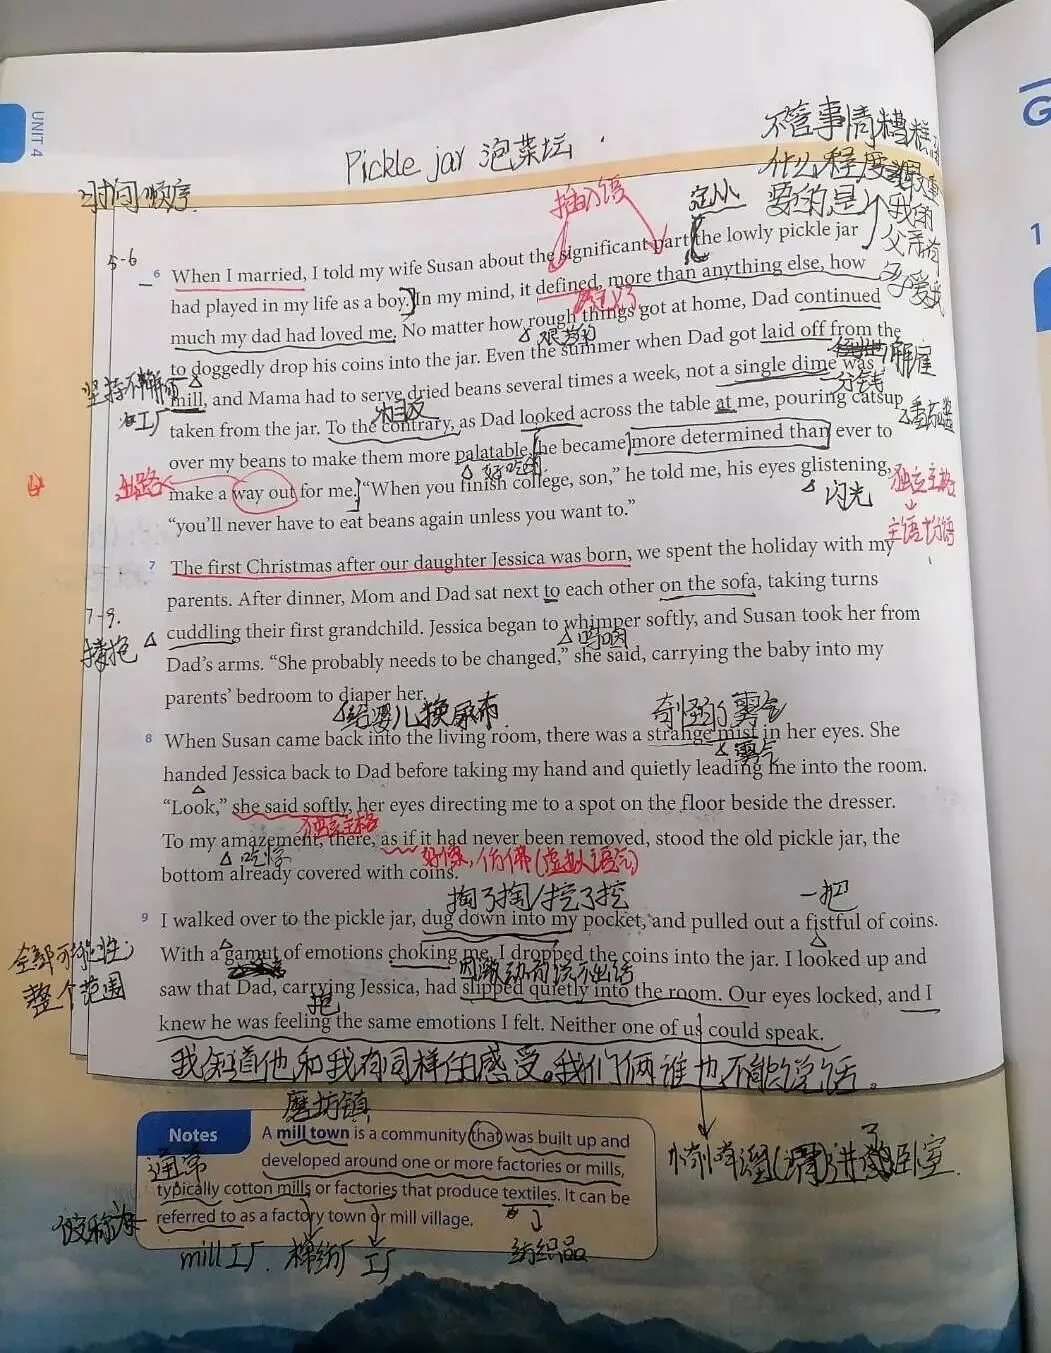 UNIT 4
G
1
Pickle jar 泡菜坛
不管事情糟糕到
什么程度
要的是
我的
父亲有
爱我
时间顺序
插入语
5-6
6 When I married, I told my wife Susan about the significant part the lowly pickle jar
had played in my life as a boy. In my mind, it defined, more than anything else, how
much my dad had loved me. No matter how rough things got at home, Dad continued
艰苦的
to doggedly drop his coins into the jar. Even the summer when Dad got laid off from the
坚持不懈
解雇
mill, and Mama had to serve dried beans several times a week, not a single dime was
工厂
相反
一分钱
taken from the jar. To the contrary, as Dad looked across the table at me, pouring catsup
番茄酱
over my beans to make them more palatable, he became more determined than ever to
好吃的
出路
make a way out for me. “When you finish college, son,” he told me, his eyes glistening,
闪光
独立主格
主语+分语
“you’ll never have to eat beans again unless you want to.”
7 The first Christmas after our daughter Jessica was born, we spent the holiday with my
parents. After dinner, Mom and Dad sat next to each other on the sofa, taking turns
7-9.
cuddling their first grandchild. Jessica began to whimper softly, and Susan took her from
搂抱
呜咽
Dad’s arms. “She probably needs to be changed,” she said, carrying the baby into my
parents’ bedroom to diaper her.
给婴儿换尿布
奇怪的雾气
8 When Susan came back into the living room, there was a strange mist in her eyes. She
雾气
handed Jessica back to Dad before taking my hand and quietly leading me into the room.
“Look,” she said softly, her eyes directing me to a spot on the floor beside the dresser.
独立主格
To my amazement, there, as if it had never been removed, stood the old pickle jar, the
吃惊
好像,仿佛(虚拟语气)
bottom already covered with coins.
掏了掏/挖了挖
一把
9 I walked over to the pickle jar, dug down into my pocket, and pulled out a fistful of coins.
With a gamut of emotions choking me, I dropped the coins into the jar. I looked up and
全部可能性;
整个范围
因激动而说不出话
saw that Dad, carrying Jessica, had slipped quietly into the room. Our eyes locked, and I
抱
knew he was feeling the same emotions I felt. Neither one of us could speak.
我知道他和我有同样的感受。我们俩谁也不能说话。
磨坊镇
Notes
A mill town is a community that was built up and
developed around one or more factories or mills,
通常
typically cotton mills or factories that produce textiles. It can be
被称为
referred to as a factory town or mill village.
悄悄溜(滑)进了卧室.
mill工厂. 棉纺厂 工厂
纺织品